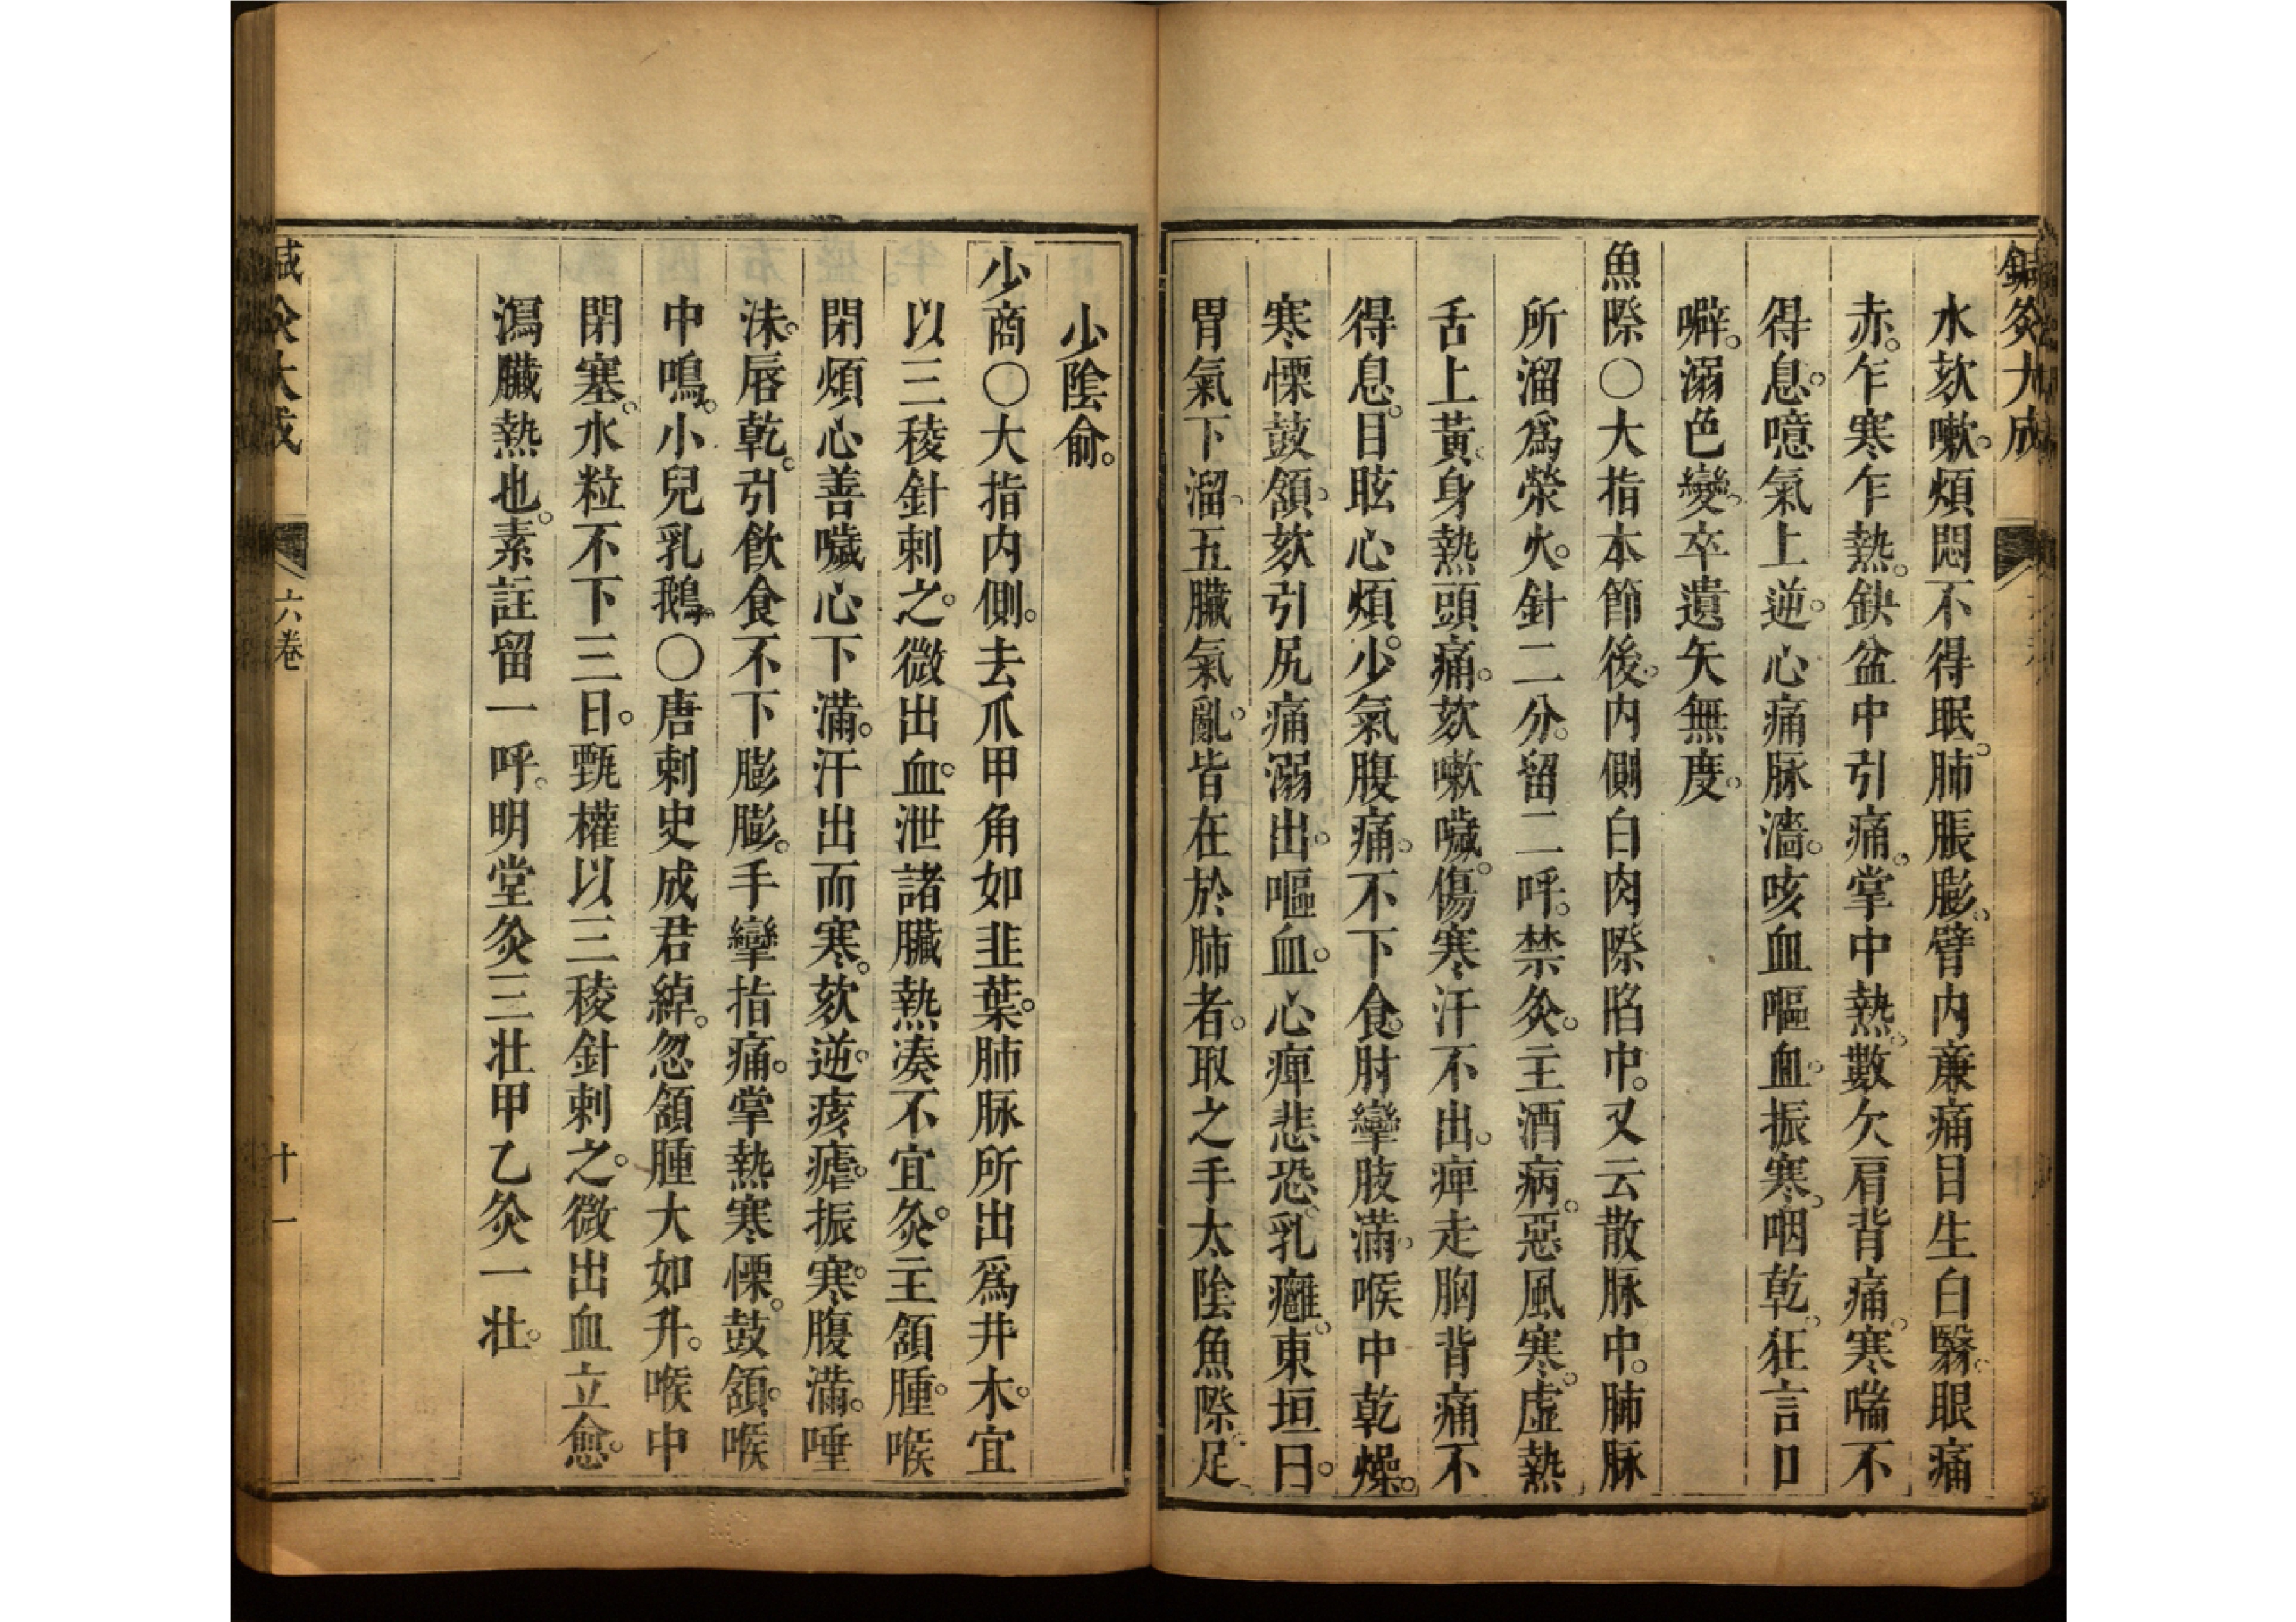 鍼灸大成
水欬嗽。煩悶不得眠。肺脹膨。臂内廉痛目生白翳。眼痛
赤。乍寒乍熱。缺盆中引痛。掌中熱。數欠肩背痛。寒喘不
得息。噫氣上逆。心痛脉濇。咳血嘔血。振寒。咽乾。狂言口
噼。溺色變。卒遺矢無度。
魚際〇大指本節後。内側白肉際陷中。又云散脉中。肺脉
所溜爲滎火。針二分。留二呼。禁灸。主酒病。惡風寒。虛熱
舌上黃。身熱頭痛。欬嗽噦。傷寒汗不出。痺走胸背痛不
得息。目眩心煩。少氣腹痛。不下食。肘攣肢滿。喉中乾燥。
寒慄鼓頷。欬引尻痛溺出。嘔血。心痺悲恐。乳癰。東垣曰。
胃氣下溜。五臟氣亂。皆在於肺者。取之手太陰魚際。足
少陰俞。
少商〇大指内側。去爪甲角如韭葉。肺脉所出爲井木。宜
以三稜針刺之。微出血。泄諸臟熱湊不宜灸。主頷腫。喉
閉煩心善噦心下滿。汗出而寒。欬逆。痎瘧。振寒。腹滿。唾
沫。唇乾。引飲食不下膨膨。手攣指痛。掌熱寒慄。鼓頷。喉
中鳴。小兒乳鵝。〇唐刺史成君綽。忽頷腫大如升。喉中
閉塞。水粒不下三日。甄權以三稜針刺之。微出血立愈。
瀉臟熱也。素註留一呼。明堂灸三壯甲乙灸一壯。
鍼灸大成
六卷
十一